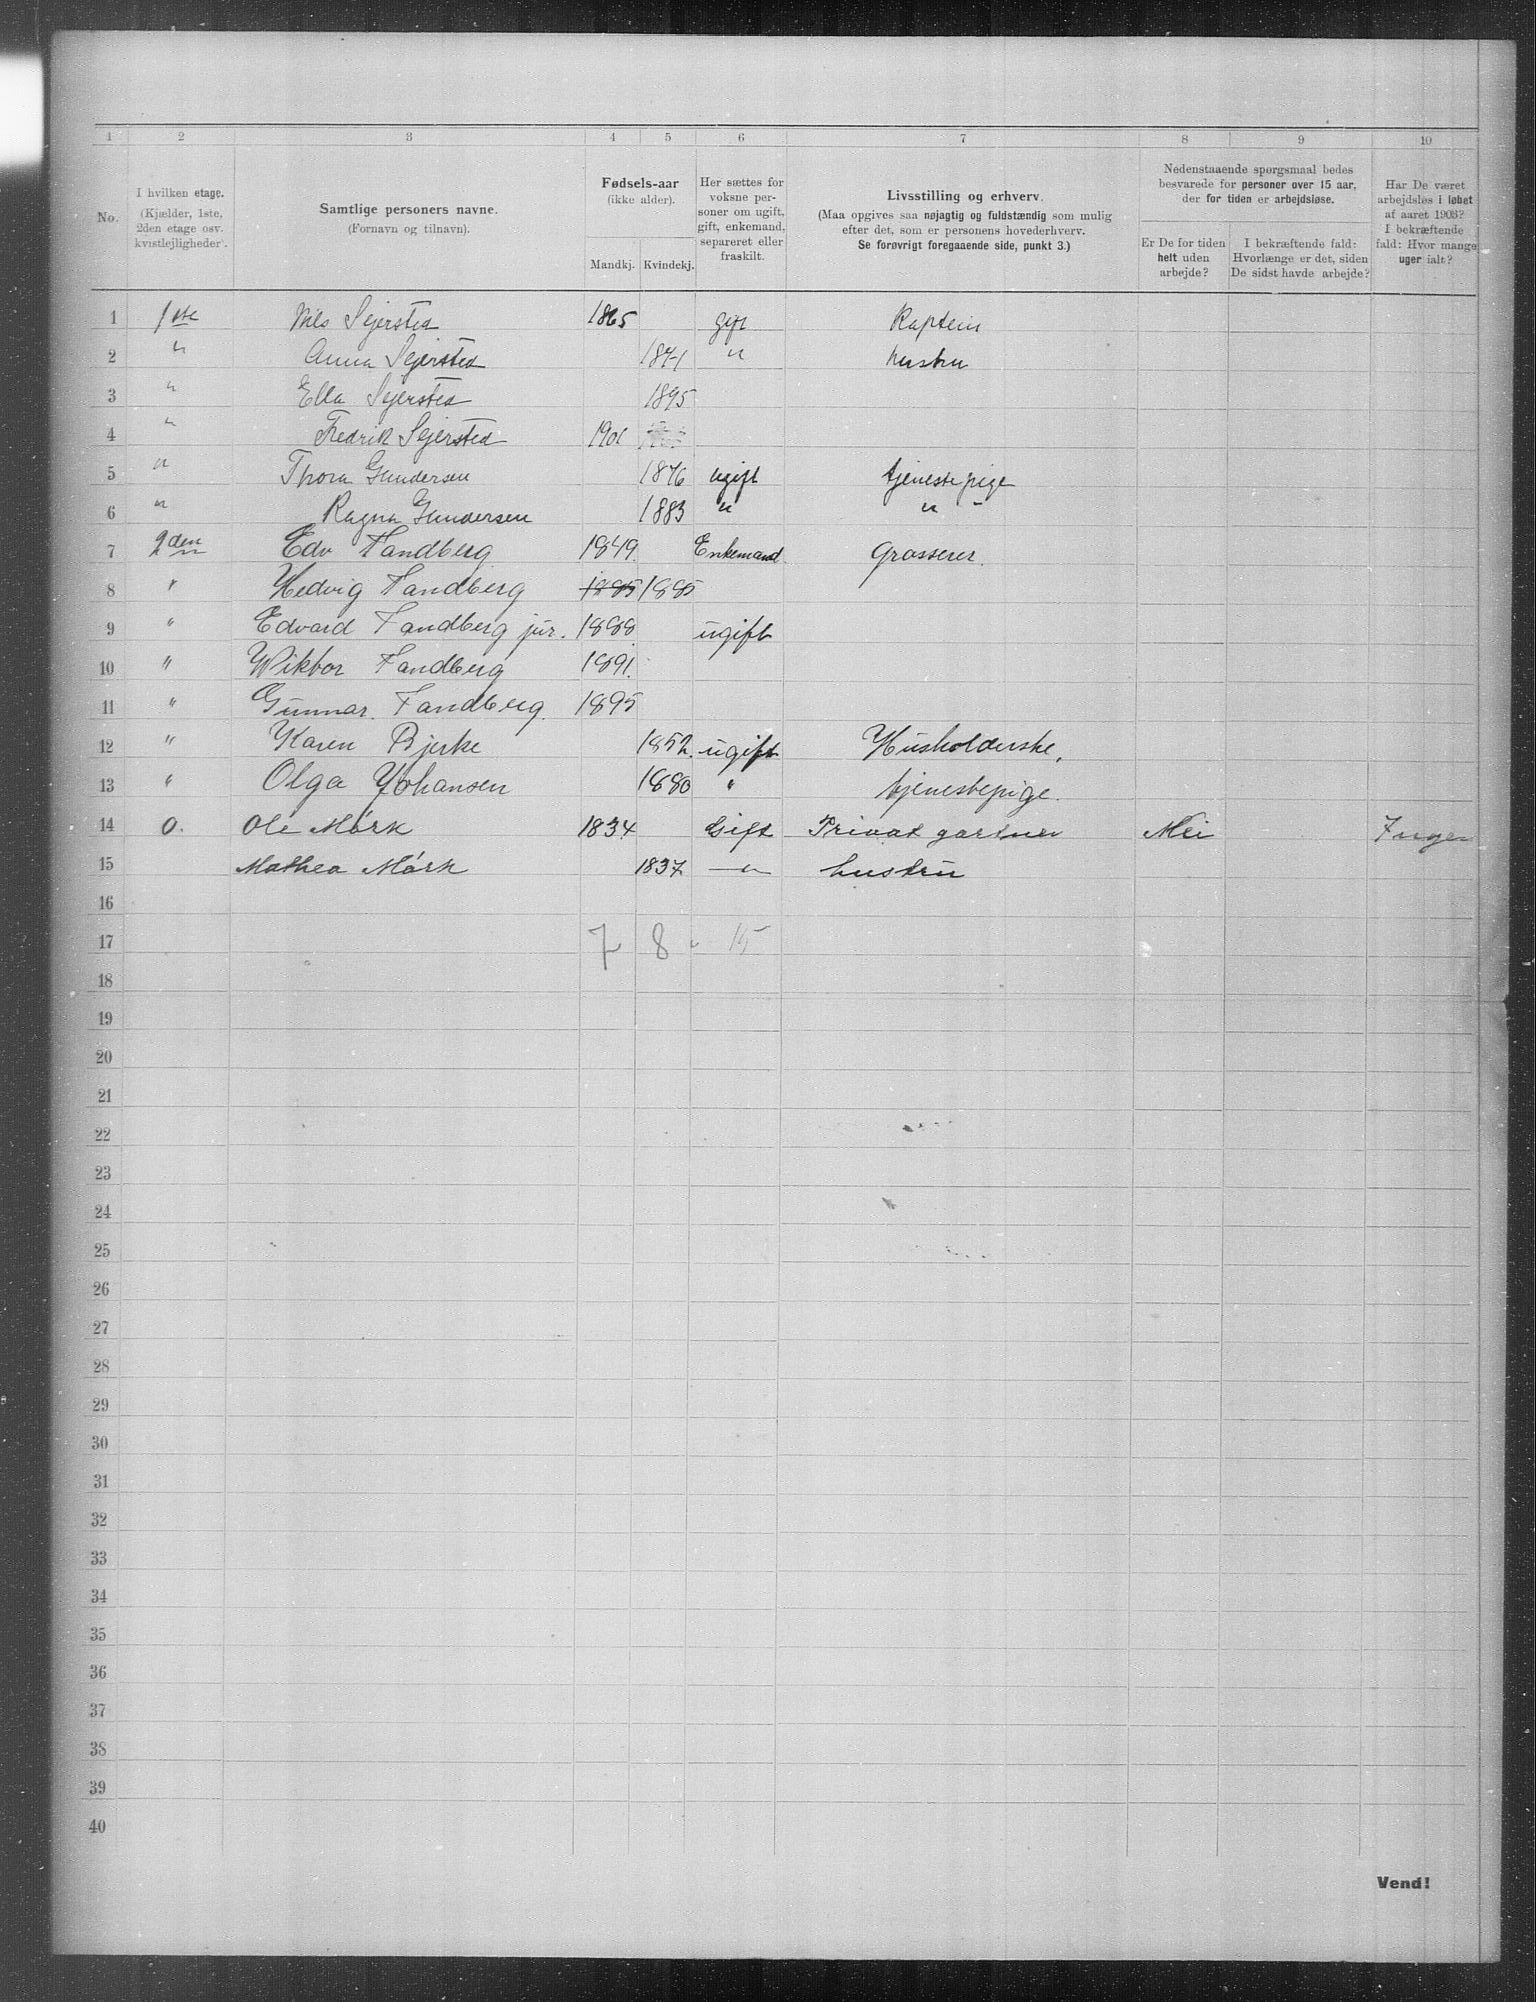 1 2 3 4 5 6 7 8 9 10
No.
I hvilken etage.
(Kjælder, 1ste,
2den etage osv.
kvistlejligheder).
Samtlige personers navne.
(Fornavn og tilnavn).
Fødsels-aar
(ikke alder).
Mandkj. Kvindekj.
Her sættes for
voksne per-
soner om ugift,
gift, enkemand,
separeret eller
fraskilt.
Livsstilling og erhverv.
(Maa opgives saa nøjagtig og fuldstændig som mulig
efter det, som er personens hovederhverv.
Se forøvrigt foregaaende side, punkt 3.)
Nedenstaaende spørgsmaal bedes
besvarede for personer over 15 aar,
der for tiden er arbejdsløse.
Er De for tiden
helt uden
arbejde?
I bekræftende fald:
Hvorlænge er det, siden
De sidst havde arbejde?
Har De været
arbejdsløs i løbet
af aaret 1903?
I bekræftende
fald: Hvor mange
uger ialt?
1 1ste Nils Sejersted 1865 gift Kaptein
2 " Anna Sejersted 1871 " hustru
3 " Ella Sejersted 1895
4 " Fredrik Sejersted 1901
5 " Thora Gundersen 1876 ugift tjenestepige
6 " Ragna Gundersen 1883 " " -
7 2den Edv Sandberg 1849. Enkemand. Grosserer.
8 " Hedvig Sandberg 1885 1885
9 " Edvard Sandberg jür. 1888 ugift
10 " Wiktor Sandberg 1891.
11 " Gunnar. Sandberg. 1895
12 " Karen Bjerke 1852. ugift Husholderske,
13 " Olga Johansen 1880 " tjenestepige.
14 0. Ole Mørk 1834 Gift Privat gartner Nei Ingen
15 Mathea Mørk 1837 — " hustru
16
17 7 8 " 15
18
19
20
21
22
23
24
25
26
27
28
29
30
31
32
33
34
35
36
37
38
39
40
Vend!